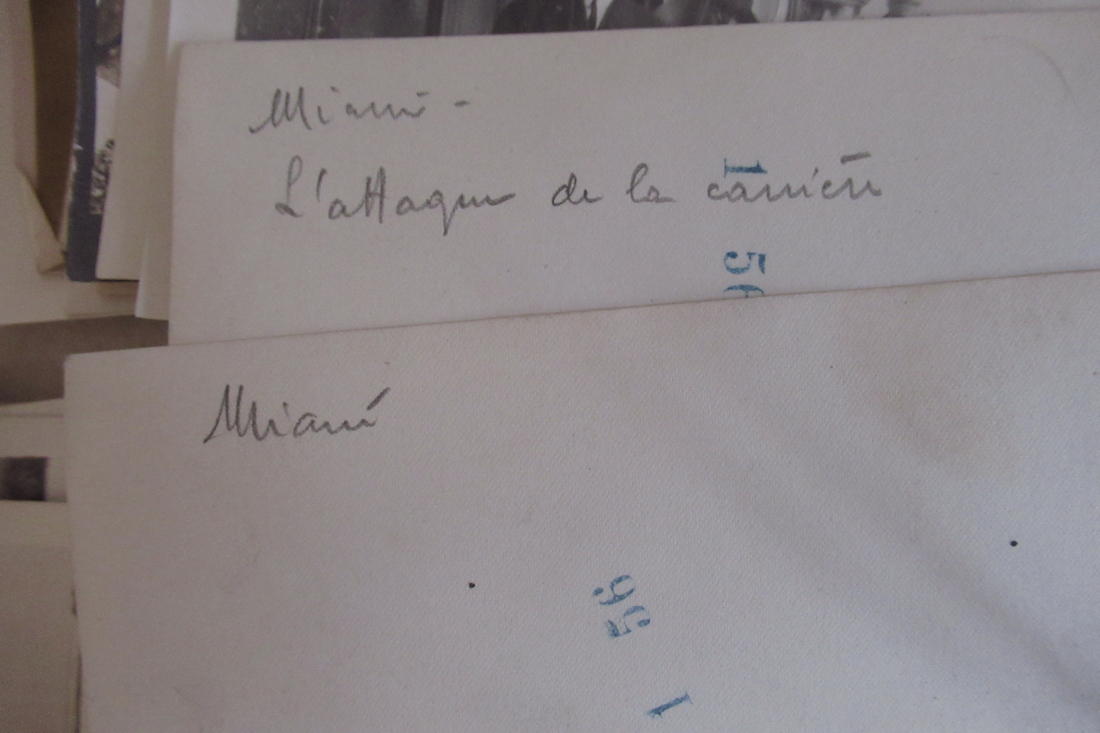 Miami -
L'attaque de la carrière
1
56
Miami
56
1